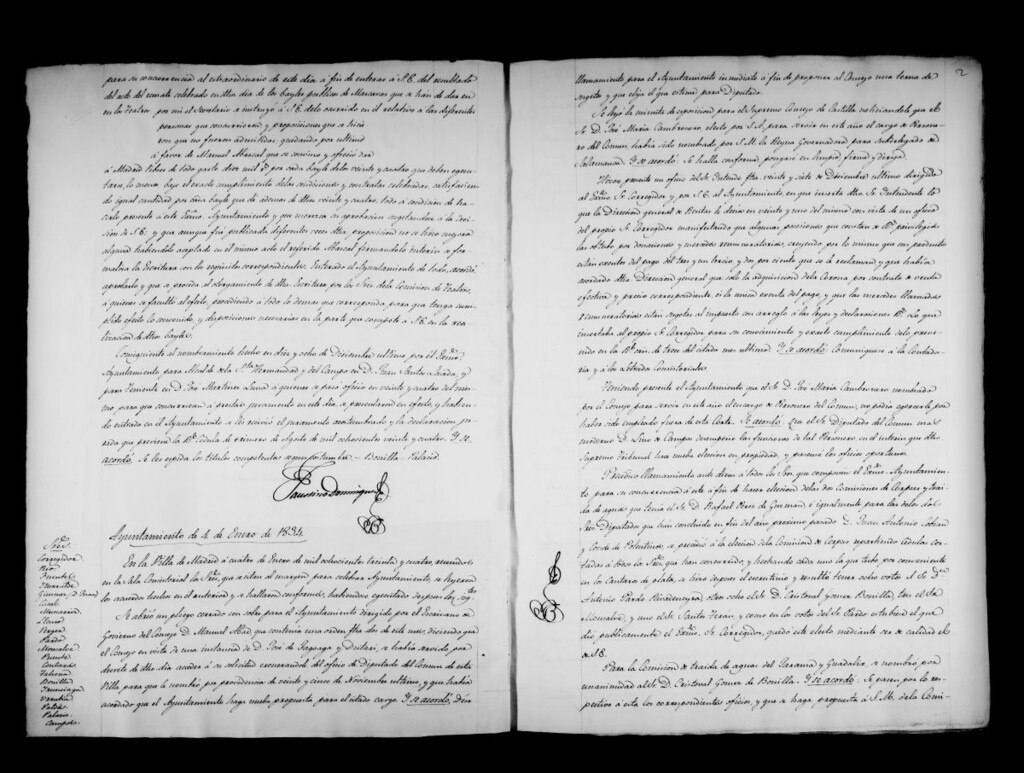 para su concurrencia al extraordinario de este dia a fin de enterar a S.E. del resultado
del acto de remate celebrado en dho dia de los bayles publicos de Mascaras que se han de dar en
en los Teatros por mi el Secretario se instruyó a S.E. de lo ocurrido en el relativo a las diferentes
personas que concurrieron y proposiciones que se hicie
ron que no fueron admitidas, quedando por ultimo
a favor de Manuel Abascal que se convino y ofreció dar
a Madrid libres de todo gasto diez mil r.s por cada bayle de los veinte y cuatro que deben egecu
tarse, lo menos bajo el exacto cumplimiento de las condiciones y contratas celebradas, satisfacien
do igual cantidad por cada bayle que de ademas de dhos veinte y cuatro, todo a condicion de ha
cerlo presente a este Exmo. Ayuntamiento y que merezca su aprobacion sugetandose a la deci
sion de S.E. y que aunque fue publicada diferentes veces dha proposicion no se hizo mejora
alguna habiendola aceptado en el mismo acto el referido Abascal firmandolo interin se for
maliza la Escritura con los requisitos correspondientes. Enterado el Ayuntamiento de todo, acordó
aprobarlo y que se proceda al otorgamiento de dha Escritura por los Sres de la Comision de Teatros,
a quienes se facultó al efecto, procediendo a todo lo demas que corresponda para que tenga cum
plido efecto lo convenido, y disposiciones necesarias en la parte que compete a S.E. en la rea
lizacion de dhos bayles.
Consiguiente al nombramiento hecho en diez y ocho de Diciembre ultimo por el Exmo.
Ayuntamiento para Alcalde de la Sta Hermandad y del Campo en D. Juan Santos Parada, y
para Teniente en D. José Martinez Luna a quienes se pasó oficio en veinte y cuatro del mis
mo para que concurriesen a prestar juramento en este dia, se presentaron en efecto, y habien
do entrado en el Ayuntamiento se les recivió el juramento acostumbrado y la declaracion pre
vista que previene la Rl. Cedula de primero de Agosto de mil ochocientos veinte y cuatro. Y se
acordó: Se les expida los titulos competentes segun costumbre. = Bonilla = Palacio.
Faustino Dominguez
Ayuntamiento de 4 de Enero de 1834.
Sres.
Corregidor
Rio
Puente
Gomez
Casal
Llano
Reyna
Pardo
Bonilla
Urrutia
Palacio
Campos
En la Villa de Madrid a cuatro de Enero de mil ochocientos treinta y cuatro, reunidos
en la Sala Consistorial los Sres. que se citan al margen para celebrar Ayuntamiento, se leyeron
los acuerdos hechos en el anterior y se hallaron conformes, habiendose egecutado despues los sigtes
Se abrió un pliego cerrado con sobre para el Ayuntamiento dirigido por el Escribano de
Govierno del Consejo D. Manuel Abad que contenia una orden fha dos de este mes, diciendo que
el Consejo en vista de una instancia de D. José de Zagasa y Duclari, se habia servido por
decreto de dho dia acceder a su solicitud exonerandole del oficio de Diputado del Comun de esta
Villa, para que le nombró por providencia de veinte y cinco de Noviembre ultimo, y que habia
acordado que el Ayuntamiento haga nueva propuesta para el citado cargo Y se acordó: Dése
2
llamamiento para el Ayuntamiento inmediato a fin de proponer al Consejo una terna de
sugetos y que elija el que estime para Diputado.
Se leyó la minuta de esposicion para el Supremo Consejo de Castilla noticiandole que el
Sr. D. José Maria Cambronero, electo por S.A. para servir en este año el cargo de Persone
ro del Comun, habia sido nombrado por S.M. la Reyna Governadora, para Subdelegado de
Salamanca. Y se acordó: Se halla conforme, pongase en limpio, firme y dirija.
Hizose presente un oficio del Sr. Intendte fha veinte y siete de Diciembre ultimo dirigido
al Exmo. Sr. Corregidor, y por S.E. al Ayuntamiento, en que inserta dho Sr. Intendente lo
que la Direccion general de Rentas le decia en veinte y uno del mismo con vista de un oficio
del propio Sr. Corregidor manifestando que algunos poseedores que constan de Rl. privilegio
las obtubo por donaciones y mercedes remuneratorias, creyendo por lo mismo que sus productos
están exentos del pago del tres y un tercio, y dos por ciento que se le reclaman y que habia
acordado dha Direccion general que solo la adquisicion de la Corona por contrato de venta
efectiva y precio correspondiente, es la unica exenta del pago, y que las mercedes llamadas
remuneratorias están sugetas al impuesto con arreglo a las leyes y declaraciones Rs. Lo que
insertaba al propio Sr. Corregidor para su conocimiento y exacto cumplimiento de lo preve
nido en la Rl. orn. de trece del citado mes ultimo. Y se acordó: Comuniquese a la Contadu
ria y a los Letrados Consistoriales.
Teniendo presente el Ayuntamiento que el Sr. D. José Maria Cambronero nombrado
por el Consejo para servir en este año el encargo de Personero del Comun, no podia egercerlo por
haber sido empleado fuera de esta Corte. Se acordó: Que el Sr. Diputado del Comun mas
moderno D. Lino de Campos desempeñe las funciones de tal Personero en el interin que dho
Supremo Tribunal hace nueva eleccion en propiedad, y pasense los oficios oportunos.
Precedido llamamiento ante diem a todos los Sres. que componen el Exmo. Ayuntamien
to para su concurrencia a este a fin de hacer eleccion de las dos Comisiones de Corpus y trai
da de aguas que tenia el Sr. D. Rafael Perez de Guzman é igualmente para las de los Ca
lleros Diputados que han concluido en fin del año proximo pasado D. Juan Antonio Cobian
y Conde de Polentinos, se procedió a la eleccion de la Comision de Corpus repartiendo cedulas cor
tadas a todos los Sres. que han concurrido, y hechando cada uno la que tubo por conveniente
en los Cantaros de plata, se hizo despues el escrutinio y resultó tener ocho votos el Sr. Dn
Antonio Pardo Rivadeneyra, otros ocho el Sr. D. Cristoval Gomez Bonilla, tres el Sr.
y uno el Sr. Santos Teran; y como en los votos del Sr. Pardo estubiese el que
dió publicamente el Exmo. Sr. Corregidor, quedó este electo mediante ser de calidad el
de S.E.
Para la Comision de traida de aguas del Jarama y Guadalix, se nombró por
unanimidad al Sr. D. Cristoval Gomez de Bonilla. Y se acordó: Se pasen por lo res
pectivo a esta los correspondientes oficios, y que se haga propuesta a S.M. de la Comi-